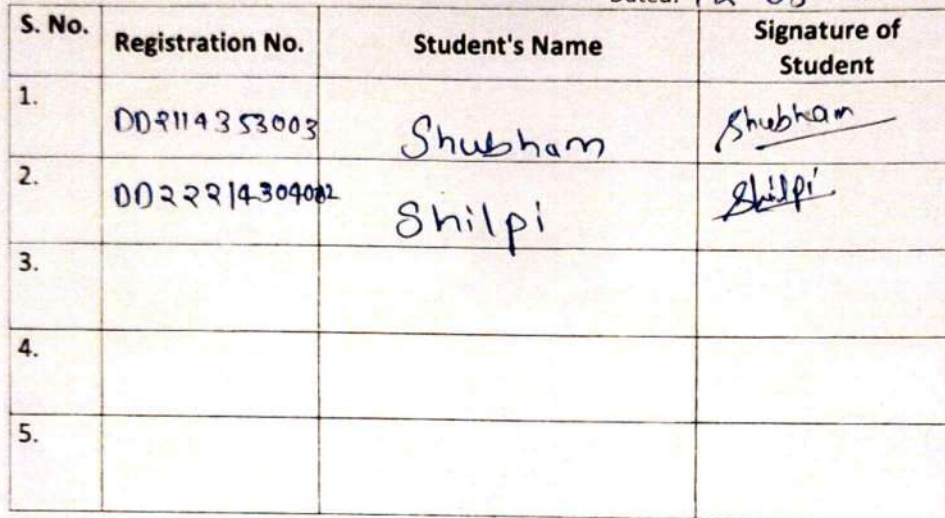 S. No. Registration No. Student's Name Signature of Student
1. DD2114353003 Shubham Shubham
2. Shilpi Shilpi
3.
4.
5.